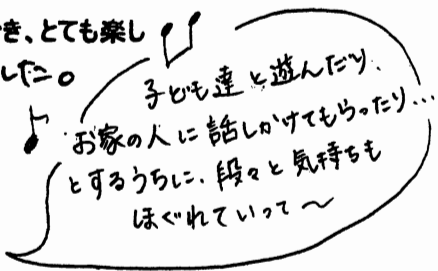 き、とても楽し
した。
子ども達と遊んだり、
お家の人に話しかけてもらったり…
とするうちに、段々と気持ちも
ほぐれていって〜